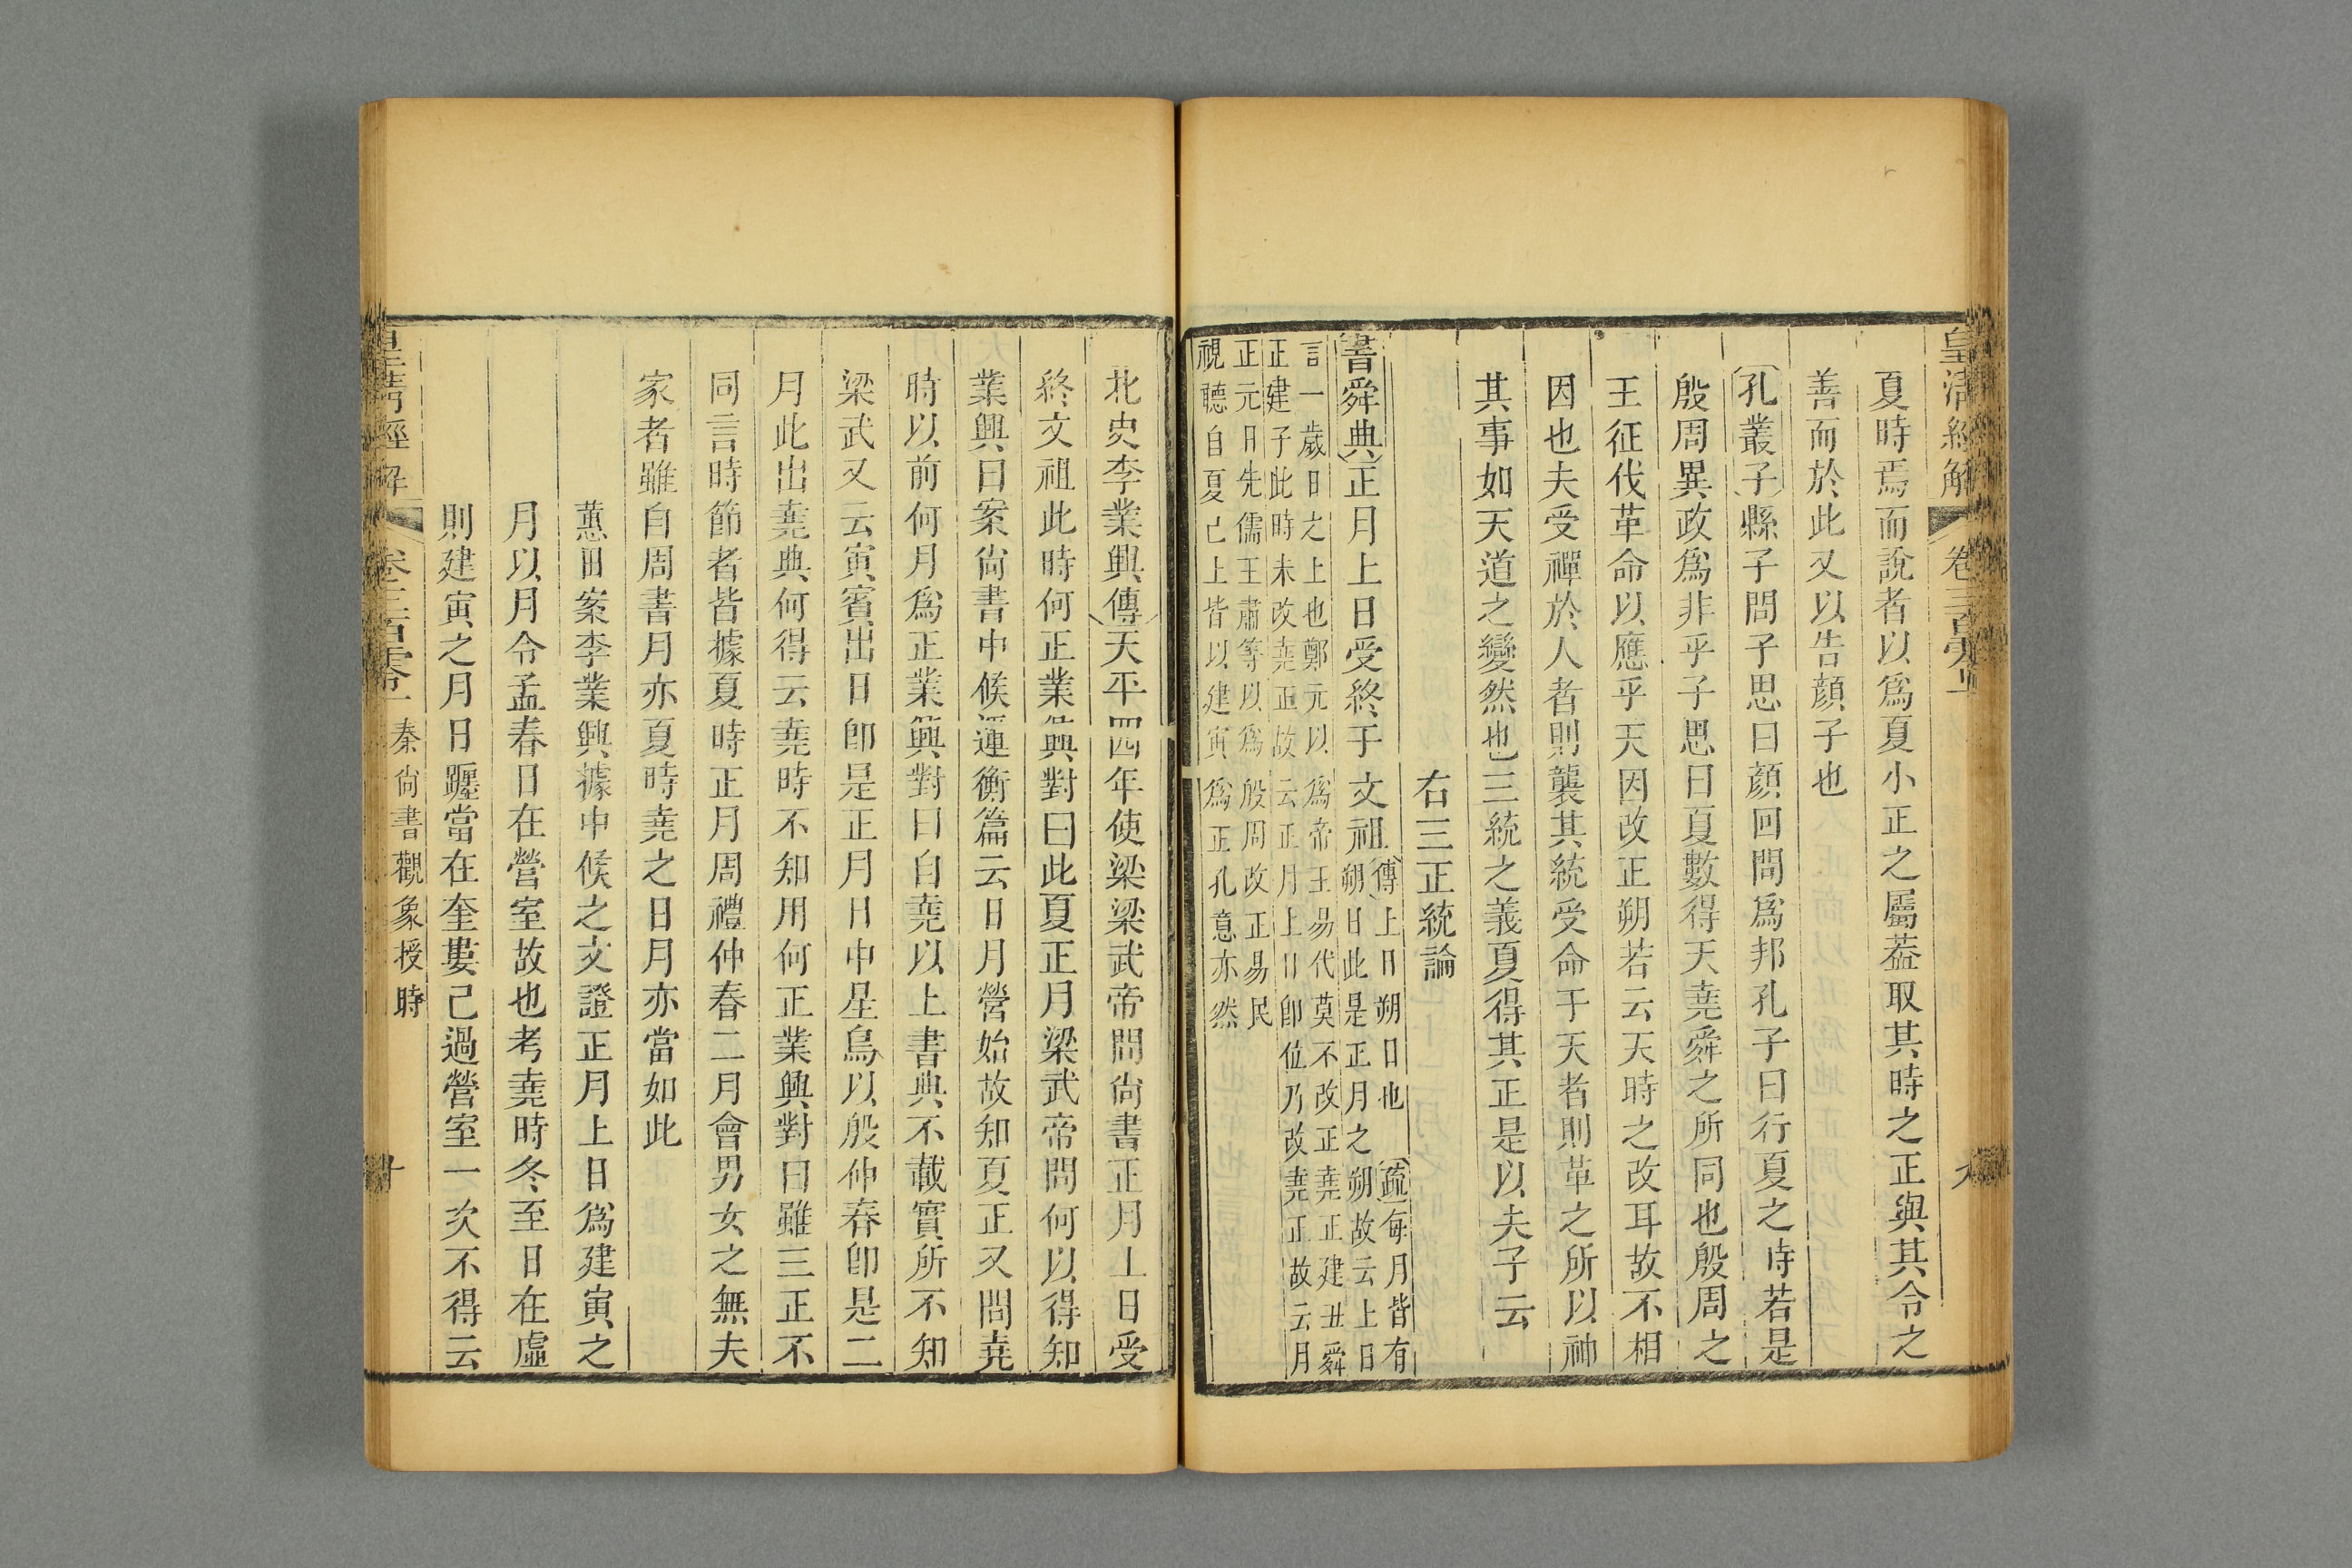 皇清經解
夏時焉而說者以爲夏小正之屬葢取其時之正與其令之
善而於此又以告顏子也
孔叢子縣子問子思曰顏回問爲邦孔子曰行夏之時若是
殷周異政爲非乎子思曰夏數得天堯舜之所同也殷周之
王征伐革命以應乎天因改正朔若云天時之改耳故不相
因也夫受禪於人者則襲其統受命于天者則革之所以神
其事如天道之變然也三統之義夏得其正是以夫子云
右三正統論
書舜典正月上日受終于文祖
傳上日朔日也疏每月皆有
朔日此是正月之朔故云上日
言一歲日之上也鄭元以爲帝王易代莫不改正堯正建丑舜
正建子此時未改堯正故云正月上日卽位乃改堯正故云月
正元日先儒王肅等以爲殷周改正易民
視聽自夏已上皆以建寅爲正孔意亦然
北史李業興傳天平四年使梁梁武帝問尙書正月上日受
終文祖此時何正業興對曰此夏正月梁武帝問何以得知
業興曰案尙書中候運衡篇云日月營始故知夏正又問堯
時以前何月爲正業興對曰自堯以上書典不載實所不知
梁武又云寅賓出日卽是正月日中星鳥以殷仲春卽是二
月此出堯典何得云堯時不知用何正業興對曰雖三正不
同言時節者皆據夏時正月周禮仲春二月會男女之無夫
家者雖自周書月亦夏時堯之日月亦當如此
蕙田案李業興據中候之文證正月上日爲建寅之
月以月令孟春日在營室故也考堯時冬至日在虛
則建寅之月日躔當在奎婁已過營室一次不得云
皇清經解
卷三百零一
秦尙書觀象授時
十